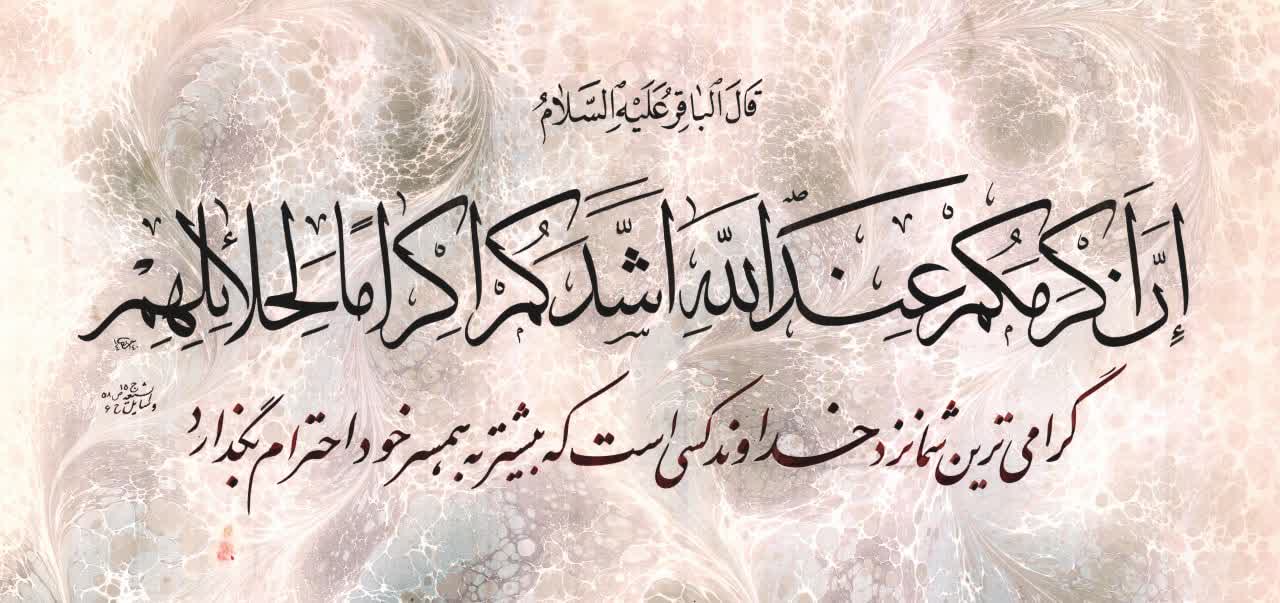 قَالَ الْبَاقِرُ عَلَيْهِ السَّلَامُ
إِنَّ أَكْرَمَكُمْ عِنْدَ اللَّهِ اَشَدُّكُمْ اِكْرَامًا لِحَلَائِلِهِمْ
گرامی ترین شما نزد خداوند کسی است که بیشتر به همسر خود احترام بگذارد
وسایل الشیعه ج ۱۵ ص ۵۸ ح ۶